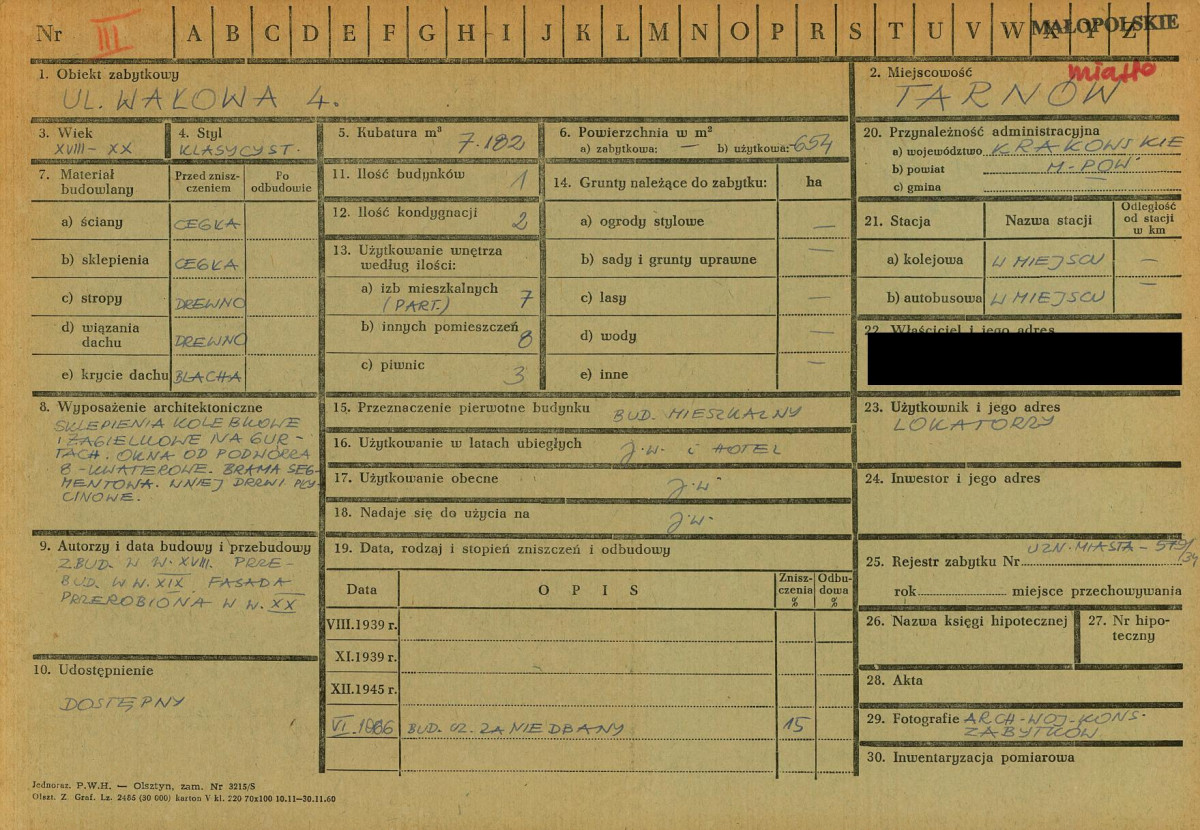 Nr III A B C D E F G H I J K L M N O P R S T U V W X Y Z
MAŁOPOLSKIE
1. Obiekt zabytkowy
UL. WAŁOWA 4.
2. Miejscowość
miasto
TARNÓW
3. Wiek
XVIII - XX
4. Styl
KLASYCYST.
5. Kubatura m³
7.182
6. Powierzchnia w m²
a) zabytkowa: — b) użytkowa: 654
20. Przynależność administracyjna
a) województwo KRAKOWSKIE
b) powiat M-POW.
c) gmina —
7. Materiał budowlany
Przed zniszczeniem
Po odbudowie
a) ściany CEGŁA
b) sklepienia CEGŁA
c) stropy DREWNO
d) wiązania dachu DREWNO
e) krycie dachu BLACHA
11. Ilość budynków 1
12. Ilość kondygnacji 2
13. Użytkowanie wnętrza
według ilości:
a) izb mieszkalnych
(PART.) 7
b) innych pomieszczeń
8
c) piwnic 3
14. Grunty należące do zabytku: ha
a) ogrody stylowe —
b) sady i grunty uprawne —
c) lasy —
d) wody —
e) inne —
21. Stacja
Nazwa stacji
Odległość
od stacji
w km
a) kolejowa W MIEJSCU —
b) autobusowa W MIEJSCU —
22. Właściciel i jego adres
8. Wyposażenie architektoniczne
SKLEPIENIA KOLEBKOWE
I ŻAGIELKOWE NA GUR-
TACH. OKNA OD PODWÓRZA
8-KWATEROWE. BRAMA SEG-
MENTOWA. W NIEJ DRZWI PŁY-
CINOWE.
15. Przeznaczenie pierwotne budynku BUD. MIESZKALNY
16. Użytkowanie w latach ubiegłych J.W. i HOTEL
17. Użytkowanie obecne J.W.
18. Nadaje się do użycia na J.W.
23. Użytkownik i jego adres
LOKATORZY
24. Inwestor i jego adres
9. Autorzy i data budowy i przebudowy
ZBUD. W W. XVIII. PRZE-
BUD. W W. XIX. FASADA
PRZEROBIONA W W. XX
19. Data, rodzaj i stopień zniszczeń i odbudowy
Data
O P I S
Zniszczenia %
Odbudowa %
VIII.1939 r.
XI.1939 r.
XII.1945 r.
VI.1966 BUD. UŻ. ZANIEDBANY 15
10. Udostępnienie
DOSTĘPNY
UZN. MIASTA - 579/34
25. Rejestr zabytku Nr
rok miejsce przechowywania
26. Nazwa księgi hipotecznej
27. Nr hipo-
teczny
28. Akta
29. Fotografie ARCH-WOJ-KONS.
ZABYTKÓW.
30. Inwentaryzacja pomiarowa
Jednoraz. P.W.H. — Olsztyn, zam. Nr 3215/S
Olszt. Z. Graf. Lz. 2485 (30 000) karton V kl. 220 70x100 10.11—30.11.60